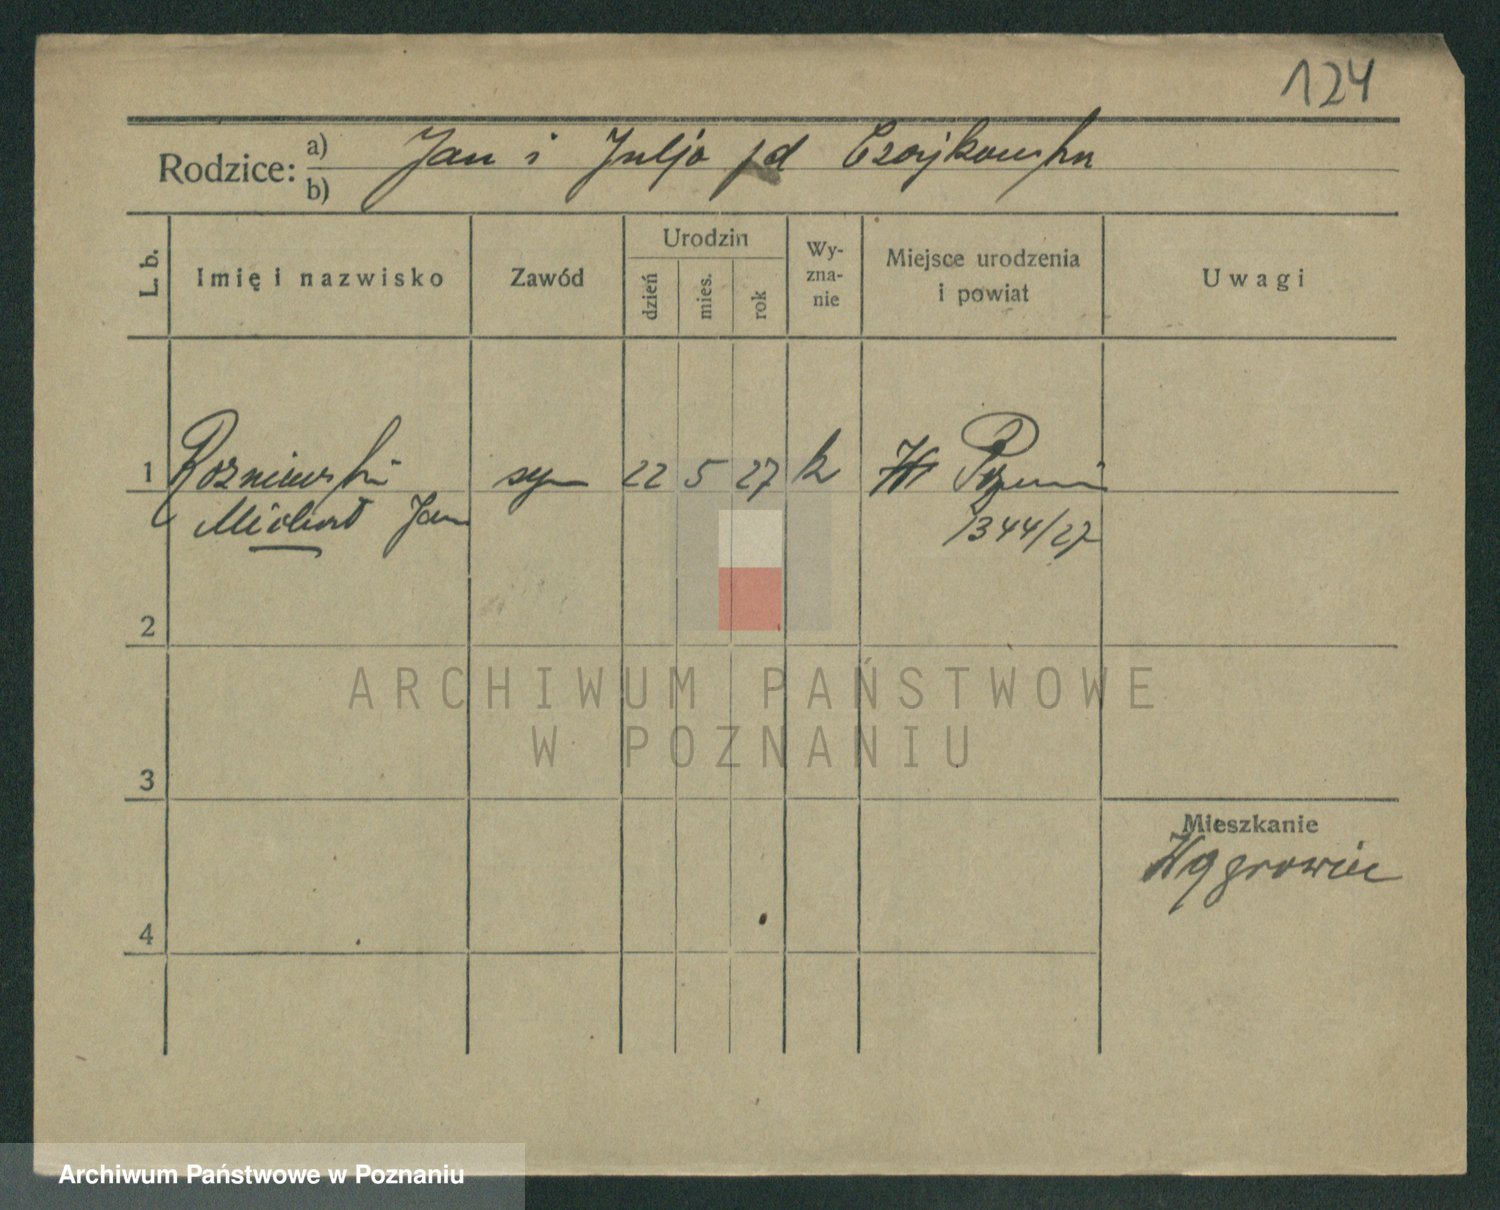 124
Rodzice: a) Jan i Julja
b)
L. b.
Imię i nazwisko
Zawód
Urodzin
dzień
mies.
rok
Wy-
zna-
nie
Miejsce urodzenia
i powiat
Uwagi
1 syn 22 5 27 k
Jan 1344/27
2
3
4
Mieszkanie
Wągrowiec
ARCHIWUM PAŃSTWOWE
W POZNANIU
Archiwum Państwowe w Poznaniu